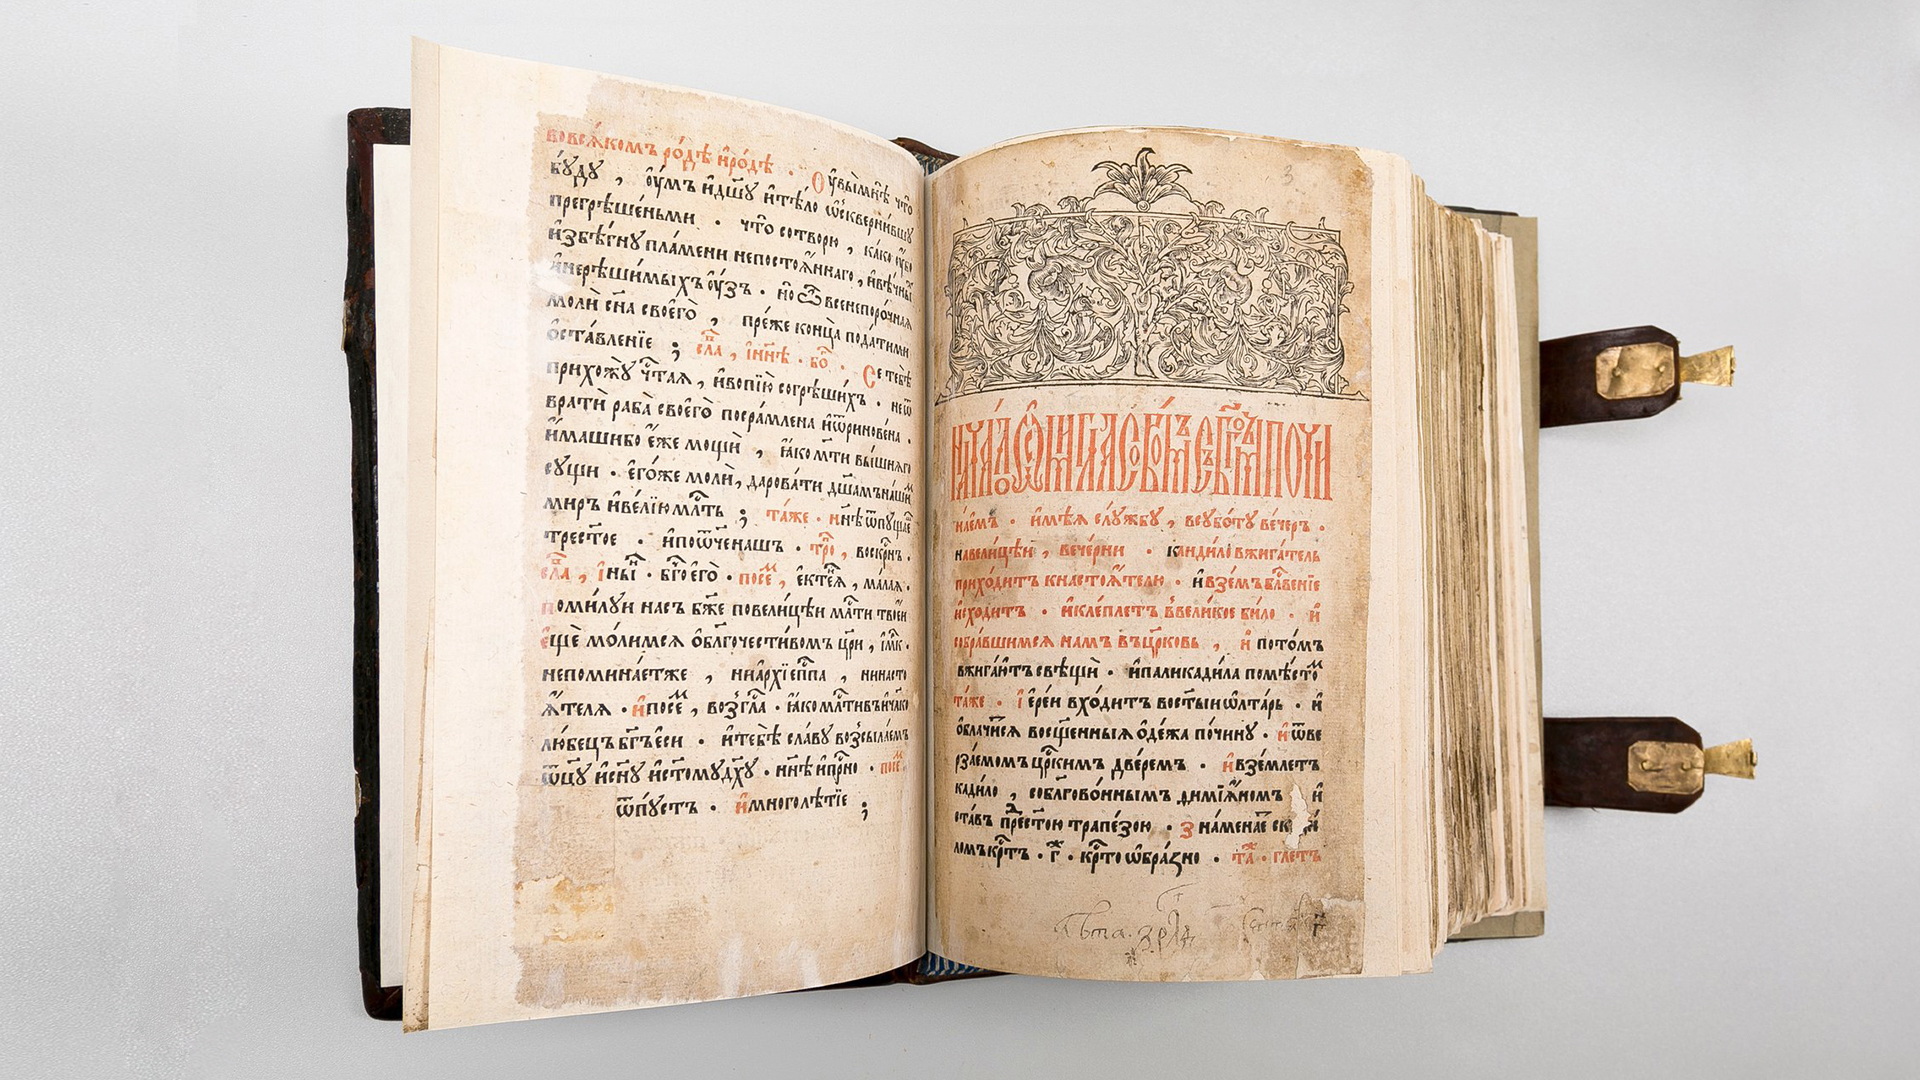 вовсѧ́комъ ро́дѣ и҆ро́дѣ . Оу҆вы́мнѣ что̀
бꙋ́дꙋ , оу҆́мъ и҆дш҃ꙋ и҆тѣ́ло ѡ҆скверни́вшꙋ
прегрѣше́ньми . что̀ сотворю̀ , ка́ко оу҆́бо
и҆збѣ́гнꙋ пла́мени непостоѧ́ннаго , и҆вѣ́чны
и҆нерѣши́мыхъ оу҆́зъ . но̀ ѿ всенепоро́чнаѧ
молѝ сн҃а своего̀ , пре́же конца̀ пода́тими
ѡ҆ставле́нїе ; сла̑ , і҆ны́нѣ . бо̑ . Се тебѣ̀
прихожꙋ̀ чт҃аѧ , и҆вопїю̀ согрѣши́хъ . неѿ
вратѝ раба̀ своего̀ посра́млена и҆ѿринове́на .
и҆́машибо є҆́же мощѝ , ꙗ҆́ко мт҃и вы́шнѧго
сꙋщи . є҆го́же молѝ, дарова́ти дш҃а́мъ на́шим
миръ и҆ве́лїю мл҃ть ; та́же . ннѣ ѿпꙋща́е
трест҃ое . и҆поѿче на́шъ . тро̑ , воскрн̑ъ .
сла̑ , і҆ны̑ . бг҃о его̀ . посе́м , є҆ктеѧ̀ , ма́лаѧ .
Поми́лꙋи на́съ бж҃е повели́цѣи мл҃ти твое́и
є҆щѐ мо́лимсѧ ѡ҆бл҃гочести́вомъ цр҃и , і҆м҃к .
непомина́етже , ниа҆рхїеп҃па , нинасто
ѧ́телѧ . и҆посе́м , возгла̑ . ꙗ҆́ко мл҃тивъ и҆чл҃ко
лю́бецъ бг҃ъ е҆сѝ . и҆тебѣ̀ сла́вꙋ возсыла́емъ
ѿц҃ꙋ и҆сн҃ꙋ и҆ст҃омꙋ дх҃ꙋ . ннѣ и҆прно . посе́м
ѿпꙋстъ . и҆многолѣ́тїе ;
3
и҆ле́мъ . и҆мѣ́ѧ слꙋ́жбꙋ , всꙋбо́тꙋ ве́черъ .
навели́цѣи , вече́рни . кандило̀ вжига́тель
прихо́дитъ кнастоѧ́телю . и҆взе́мъ бл҃ве́нїе
и҆схо́дитъ . и҆кле́плетъ в̾вели́кое би́ло . и҆
собра́вшимсѧ на́мъ въцр҃ковь , и҆ пото́мъ
вжига́ютъ свѣщѝ . и҆паликади́ла помѣ́сто
та́же . і҆ере́и вхо́дитъ вост҃ы́и ѡ҆лта́рь . и҆
ѡ҆блачи́сѧ восщ҃е́нныѧ ѻ҆де́жа по́чинꙋ . и҆ѿве
рза́емомъ цр҃кимъ две́ремъ . и҆взе́млетъ
кади́ло , собл҃гово́ннымъ димїѧ́номъ и҆
ста́въ прест҃ою трапе́зою . Зна́менае
ломъ крт҃ъ . г҃ . крт҃оѡбра́зно . та̑ . гл҃етъ